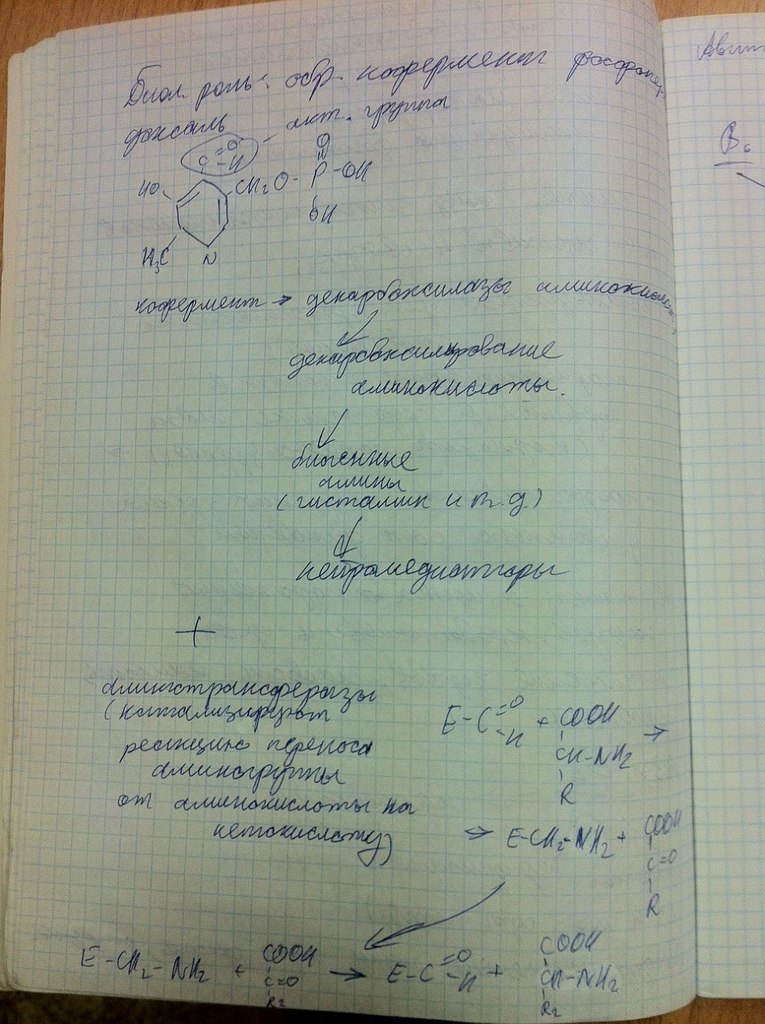 Биол. роль: обр. кофермент фосфопири-
доксаль
акт. группа
C =O
-H
O
HO
CH2O - P - OH
OH
H3C
N
кофермент → декарбоксилазы аминокислот
декарбоксилирование
аминокислоты.
биогенные
амины
(гистамин и т.д.)
нейромедиаторы
+
аминотрансферазы
(катализируют
реакцию переноса
аминогруппы
от аминокислоты на
кетокислоту)
E-C =O -H + COOH CH-NH2 R →
→ E-CH2-NH2 + COOH C=O R
E-CH2-NH2 + COOH C=O R2 → E-C =O -H + COOH CH-NH2 R2
Авит
B6